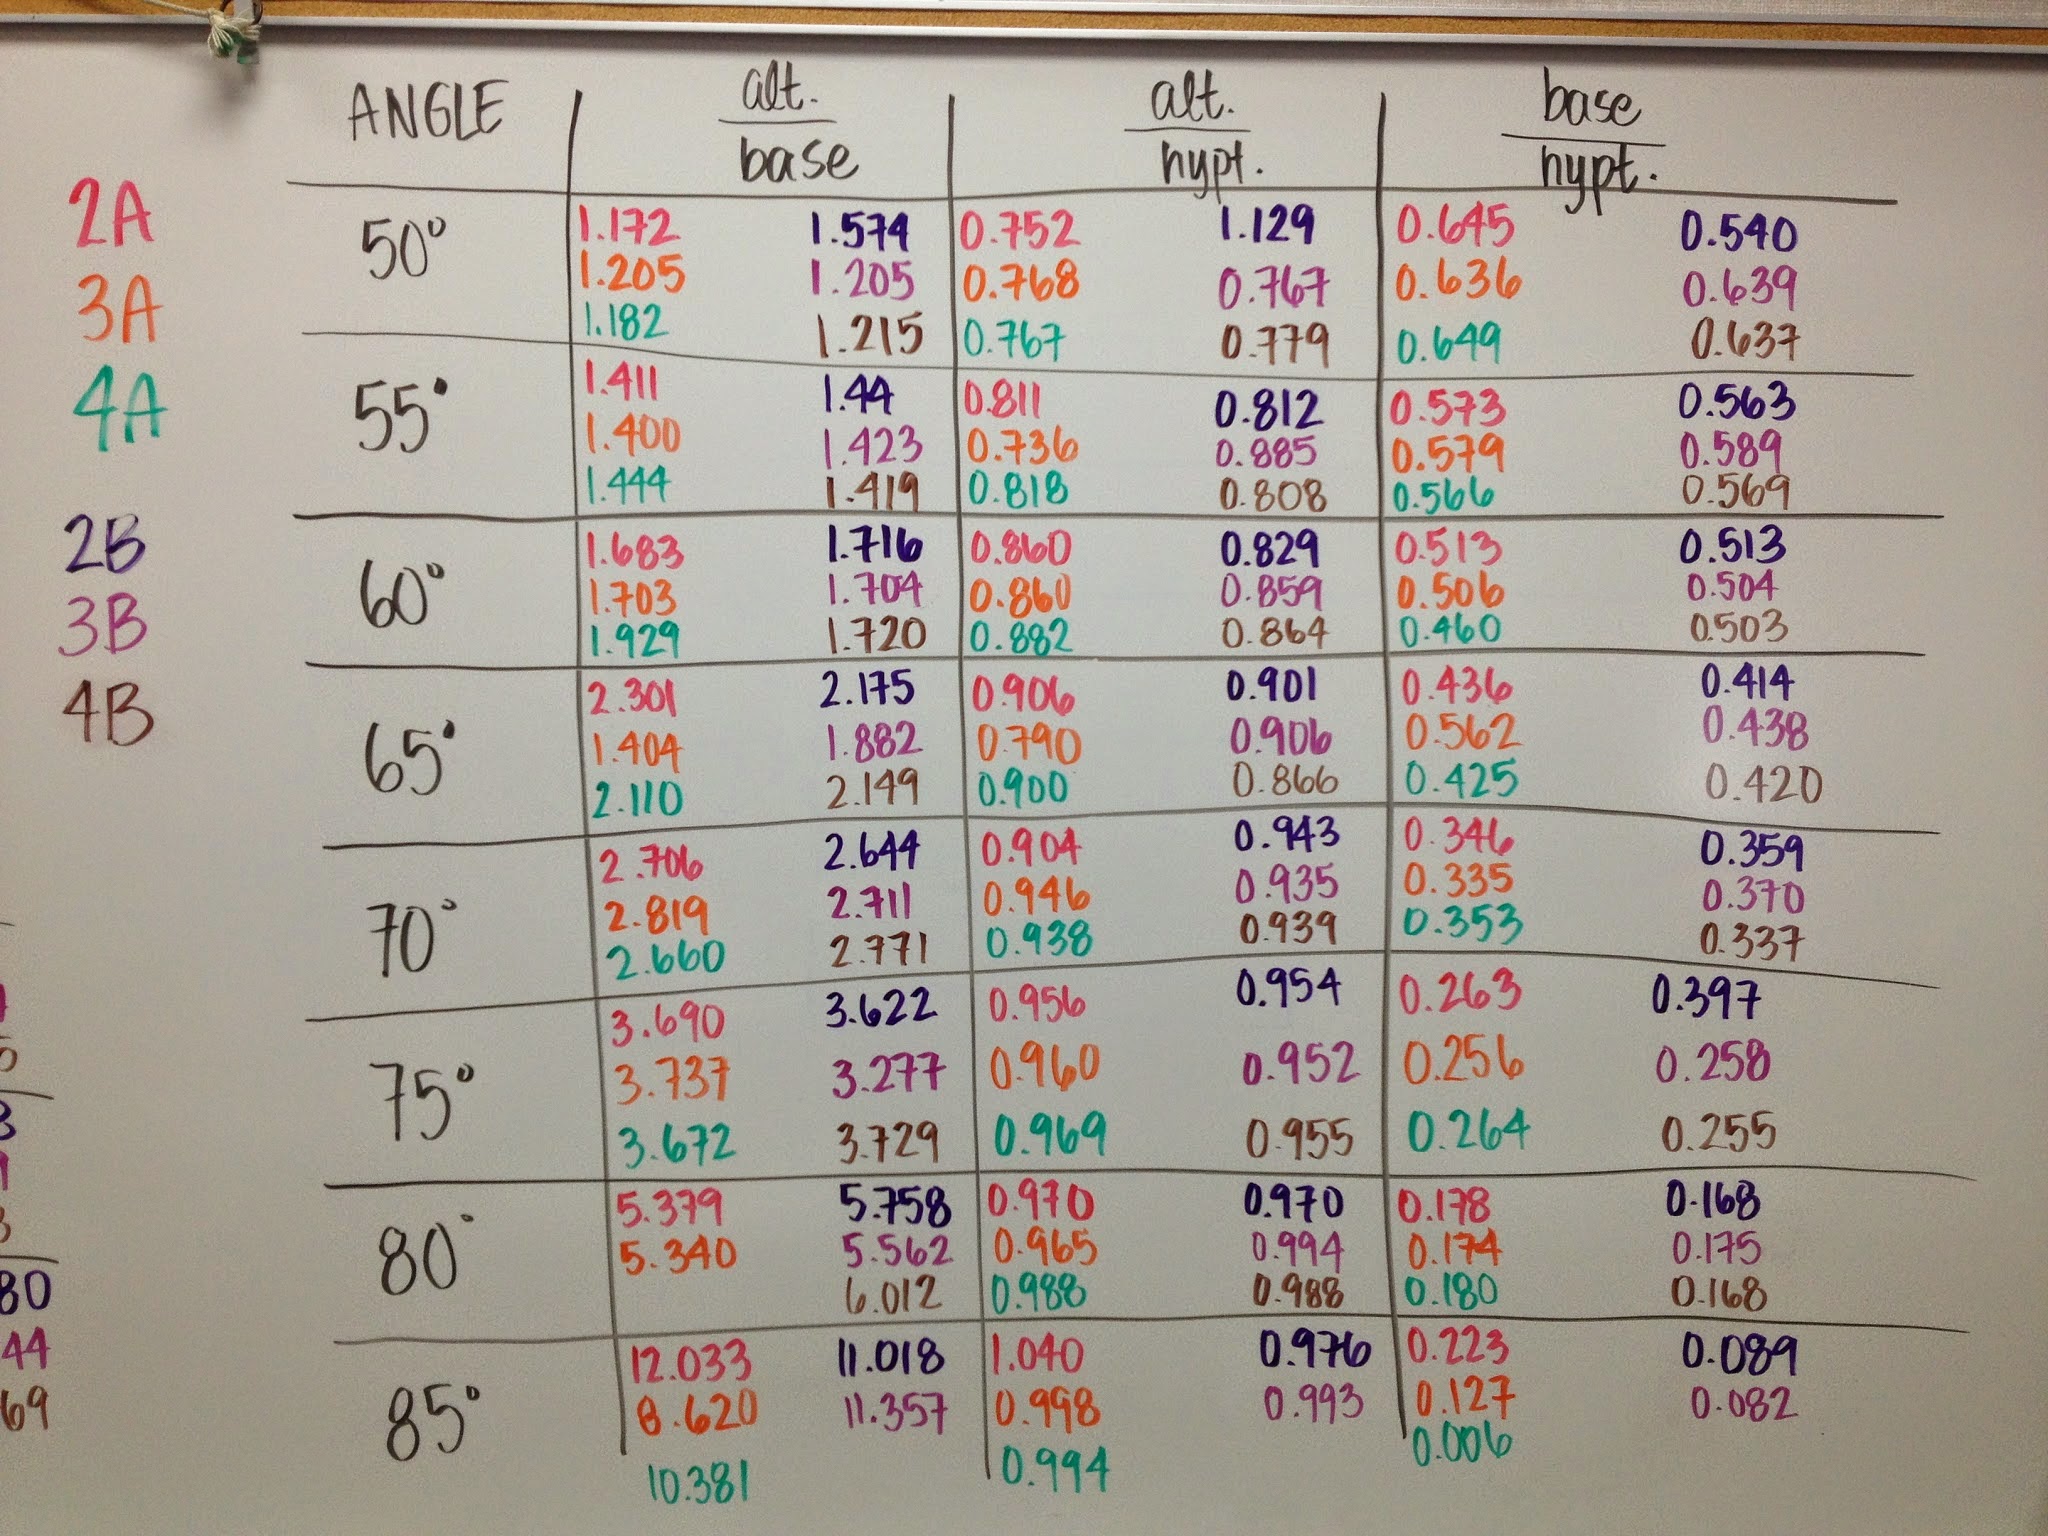 ANGLE alt. alt. base
base hypt. hypt.
2A
3A
4A
2B
3B
4B
50° 1.172 1.574 0.752 1.129 0.645 0.540
1.205 1.205 0.768 0.767 0.636 0.639
1.182 1.215 0.767 0.779 0.649 0.637
55° 1.411 1.44 0.811 0.812 0.573 0.563
1.400 1.423 0.736 0.885 0.579 0.589
1.444 1.419 0.818 0.808 0.566 0.569
60° 1.683 1.716 0.860 0.829 0.513 0.513
1.703 1.704 0.860 0.859 0.506 0.504
1.929 1.720 0.882 0.864 0.460 0.503
65° 2.301 2.175 0.906 0.901 0.436 0.414
1.404 1.882 0.790 0.906 0.562 0.438
2.110 2.149 0.900 0.866 0.425 0.420
70° 2.706 2.644 0.904 0.943 0.346 0.359
2.819 2.711 0.946 0.935 0.335 0.370
2.660 2.771 0.938 0.939 0.353 0.337
75° 3.690 3.622 0.956 0.954 0.263 0.397
3.737 3.277 0.960 0.952 0.256 0.258
3.672 3.729 0.969 0.955 0.264 0.255
80° 5.379 5.758 0.970 0.970 0.178 0.168
5.340 5.562 0.965 0.994 0.174 0.175
6.012 0.988 0.988 0.180 0.168
85° 12.033 11.018 1.040 0.976 0.223 0.089
8.620 11.357 0.998 0.993 0.127 0.082
10.381 0.994 0.006
80
44
69